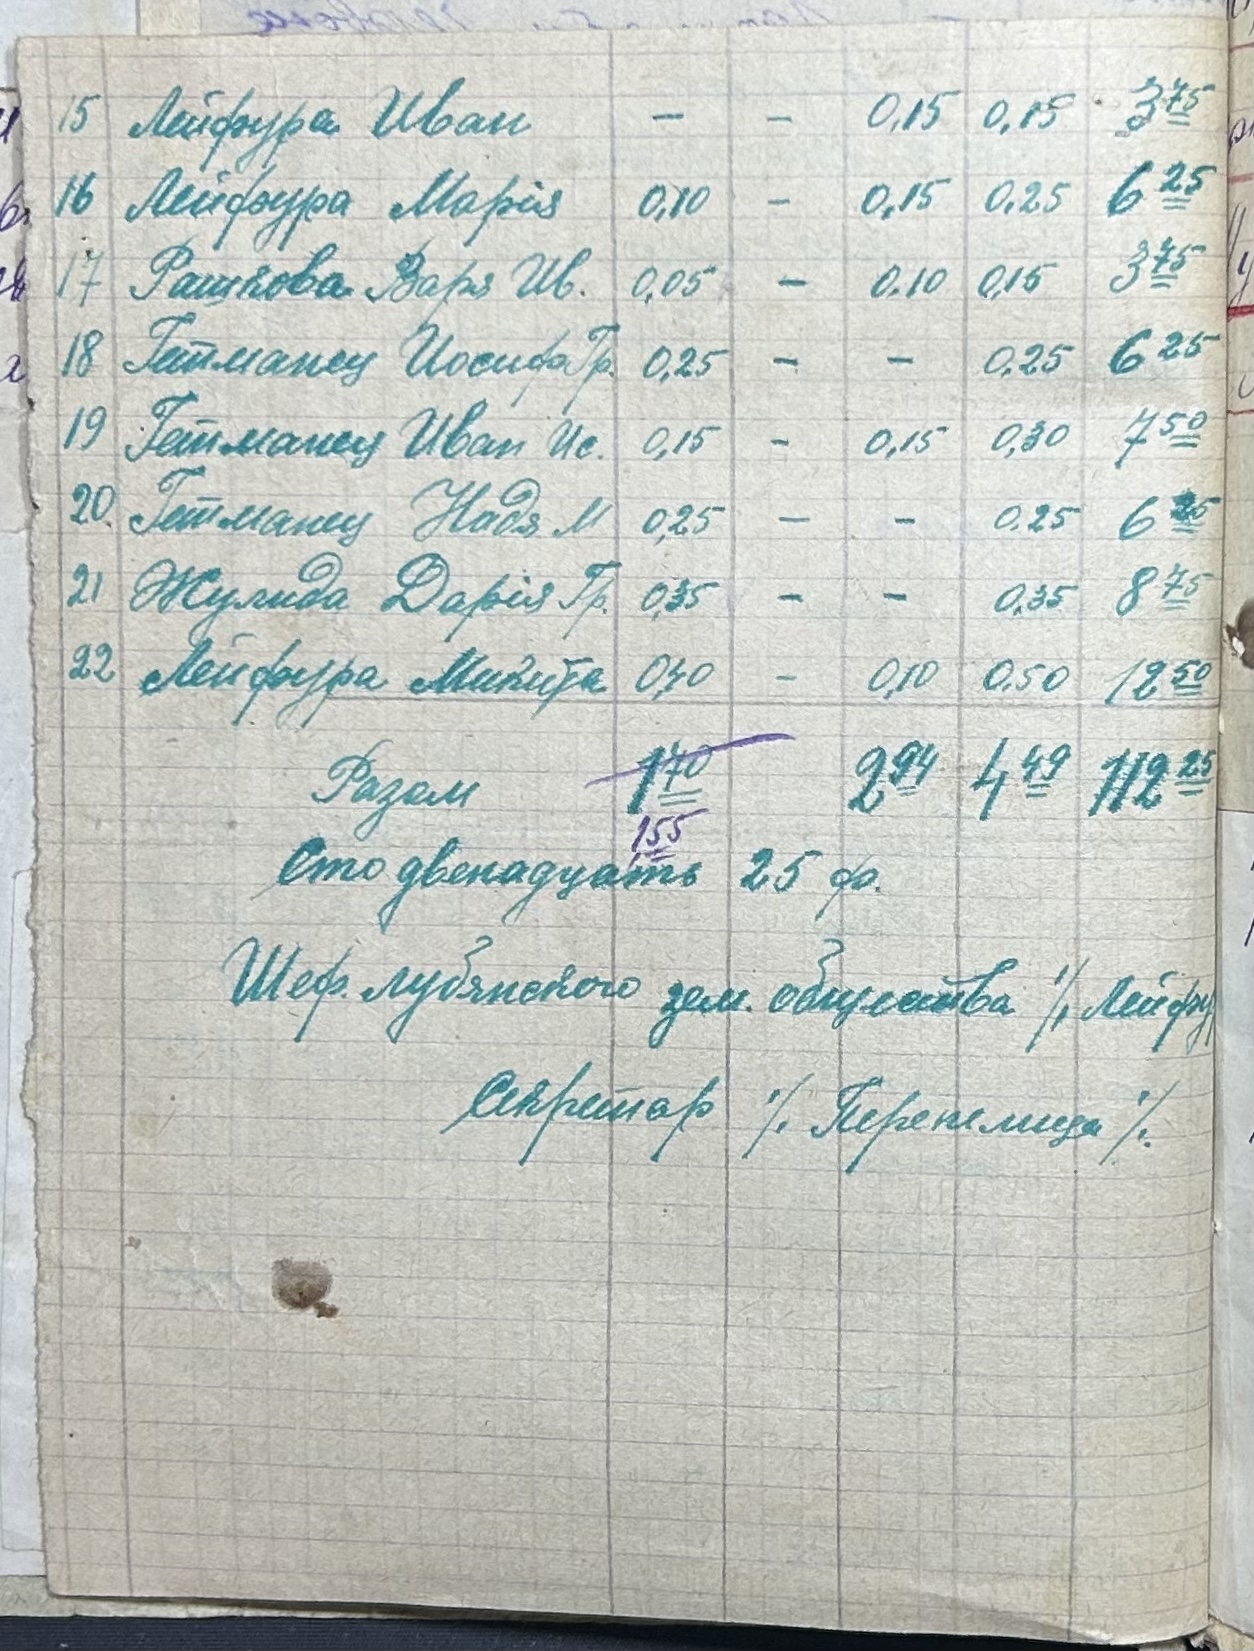 15 Лейфура Иван - - 0,15 0,15 3 75
16 Лейфура Марія 0,10 - 0,15 0,25 6 25
17 Рашкова Варя Ив. 0,05 - 0,10 0,15 3 75
18 Гетманец Иосиф Гр. 0,25 - - 0,25 6 25
19 Гетманец Иван Ис. 0,15 - 0,15 0,30 7 50
20. Гетманец Надя М 0,25 - - 0.25 6 25
21 Жулида Дарія Гр. 0,35 - - 0,35 8 75
22 Лейфура Микита 0,40 - 0,10 0,50 12 50
Разом 1 70 2 94 4 49 112 25
1 55
Сто двенадцать 25 ф.
Шеф. лубянского зем. общества /. Лейфу
Секретар ·/. Перепелица ·/.